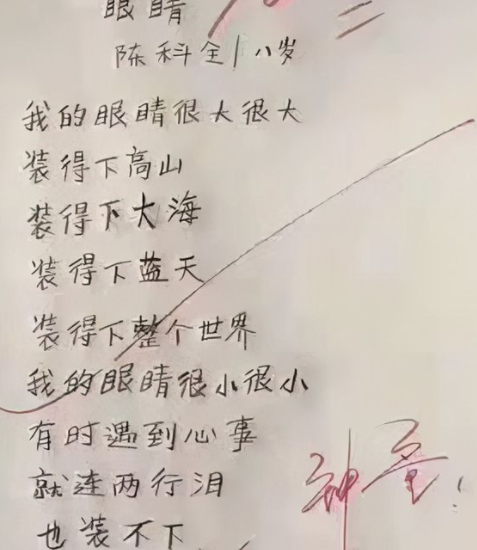 眼睛
陈科全|八岁
我的眼睛很大很大
装得下高山
装得下大海
装得下蓝天
装得下整个世界
我的眼睛很小很小
有时遇到心事
就连两行泪
也装不下
神童!